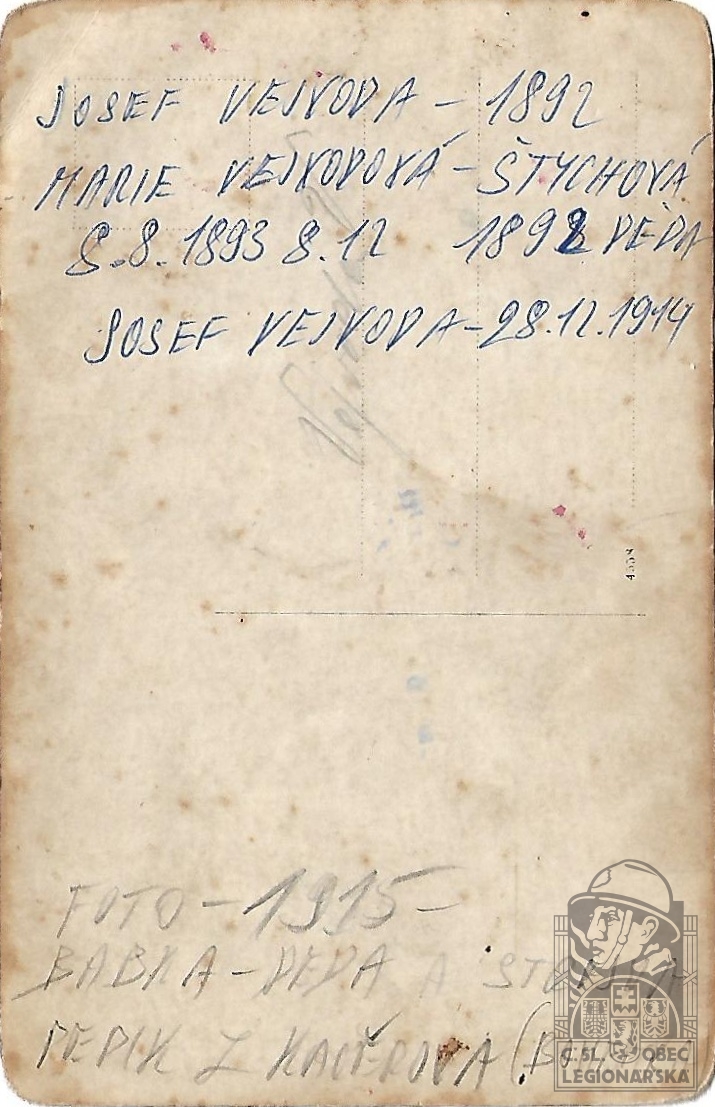 JOSEF VEJVODA – 1892
MARIE VEJVODOVÁ – ŠTYCHOVÁ
8.8.1893 8.12 1892 DĚDA
JOSEF VEJVODA – 28.12.1914
Vejvoda
4558
FOTO – 1915 –
BABKA – DĚDA A
PEPIK Z KAČEROVA
Č.SL. OBEC
LEGIONÁŘSKÁ